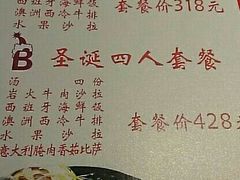 西班牙海鲜饭
澳洲西冷牛排
水果沙拉
套餐价318元
B 圣诞四人套餐
汤 四份
岩火牛肉沙拉
西班牙海鲜饭
澳洲西冷牛排
水果沙拉
意大利腌肉香茹比萨
套餐价428